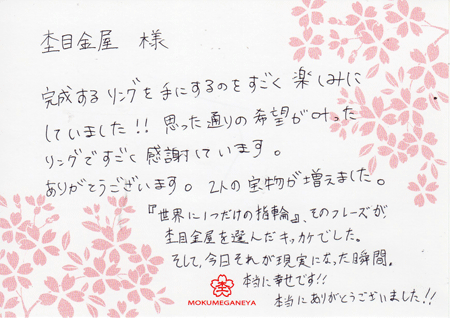 杢目金屋 様
完成するリングを手にするのをすごく楽しみに
していました!! 思った通りの希望が叶った
リングですごく感謝しています。
ありがとうございます。2人の宝物が増えました。
『世界に1つだけの指輪』、そのフレーズが
杢目金屋を選んだキッカケでした。
そして、今日それが現実になった瞬間。
本当に幸せです!!
本当にありがとうございました!!
MOKUMEGANEYA